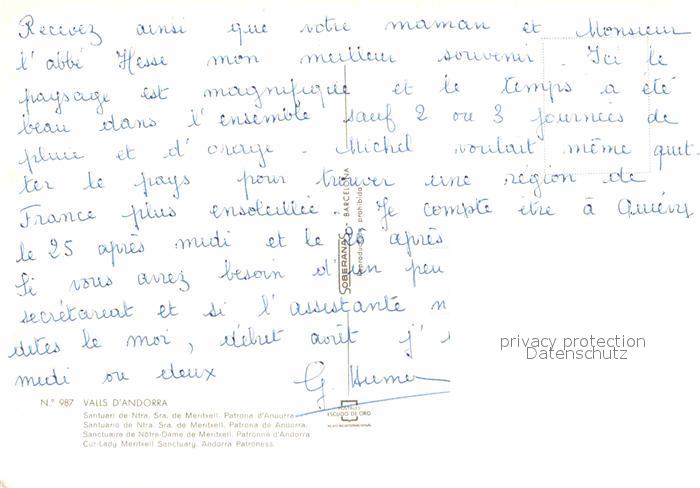 Recevez ainsi que votre maman et Monsieur
l'abbé Hesse mon meilleur souvenir. Ici le
paysage est magnifique et le temps a été
beau dans l'ensemble sauf 2 ou 3 journées de
pluie et d'orage. Michel voulait même quit-
ter le pays pour trouver une région de
France plus ensoleillée. Je compte être à
le 25 après midi et le 26 après
Si vous avez besoin d'un peu
secrétariat et si l'assistante n
dites le moi, début août j'
midi ou deux
G. Humer
SOBERANAS - BARCELONA
Reproducción prohibida
privacy protection
Datenschutz
N.º 987 VALLS D'ANDORRA
Santuari de Ntra. Sra. de Meritxell. Patrona d'Andorra
Santuario de Ntra. Sra. de Meritxell. Patrona de Andorra.
Sanctuaire de Nôtre-Dame de Meritxell. Patronne d'Andorra
Our-Lady Meritxell Sanctuary. Andorra Patroness.
POSTALES
ESCUDO DE ORO